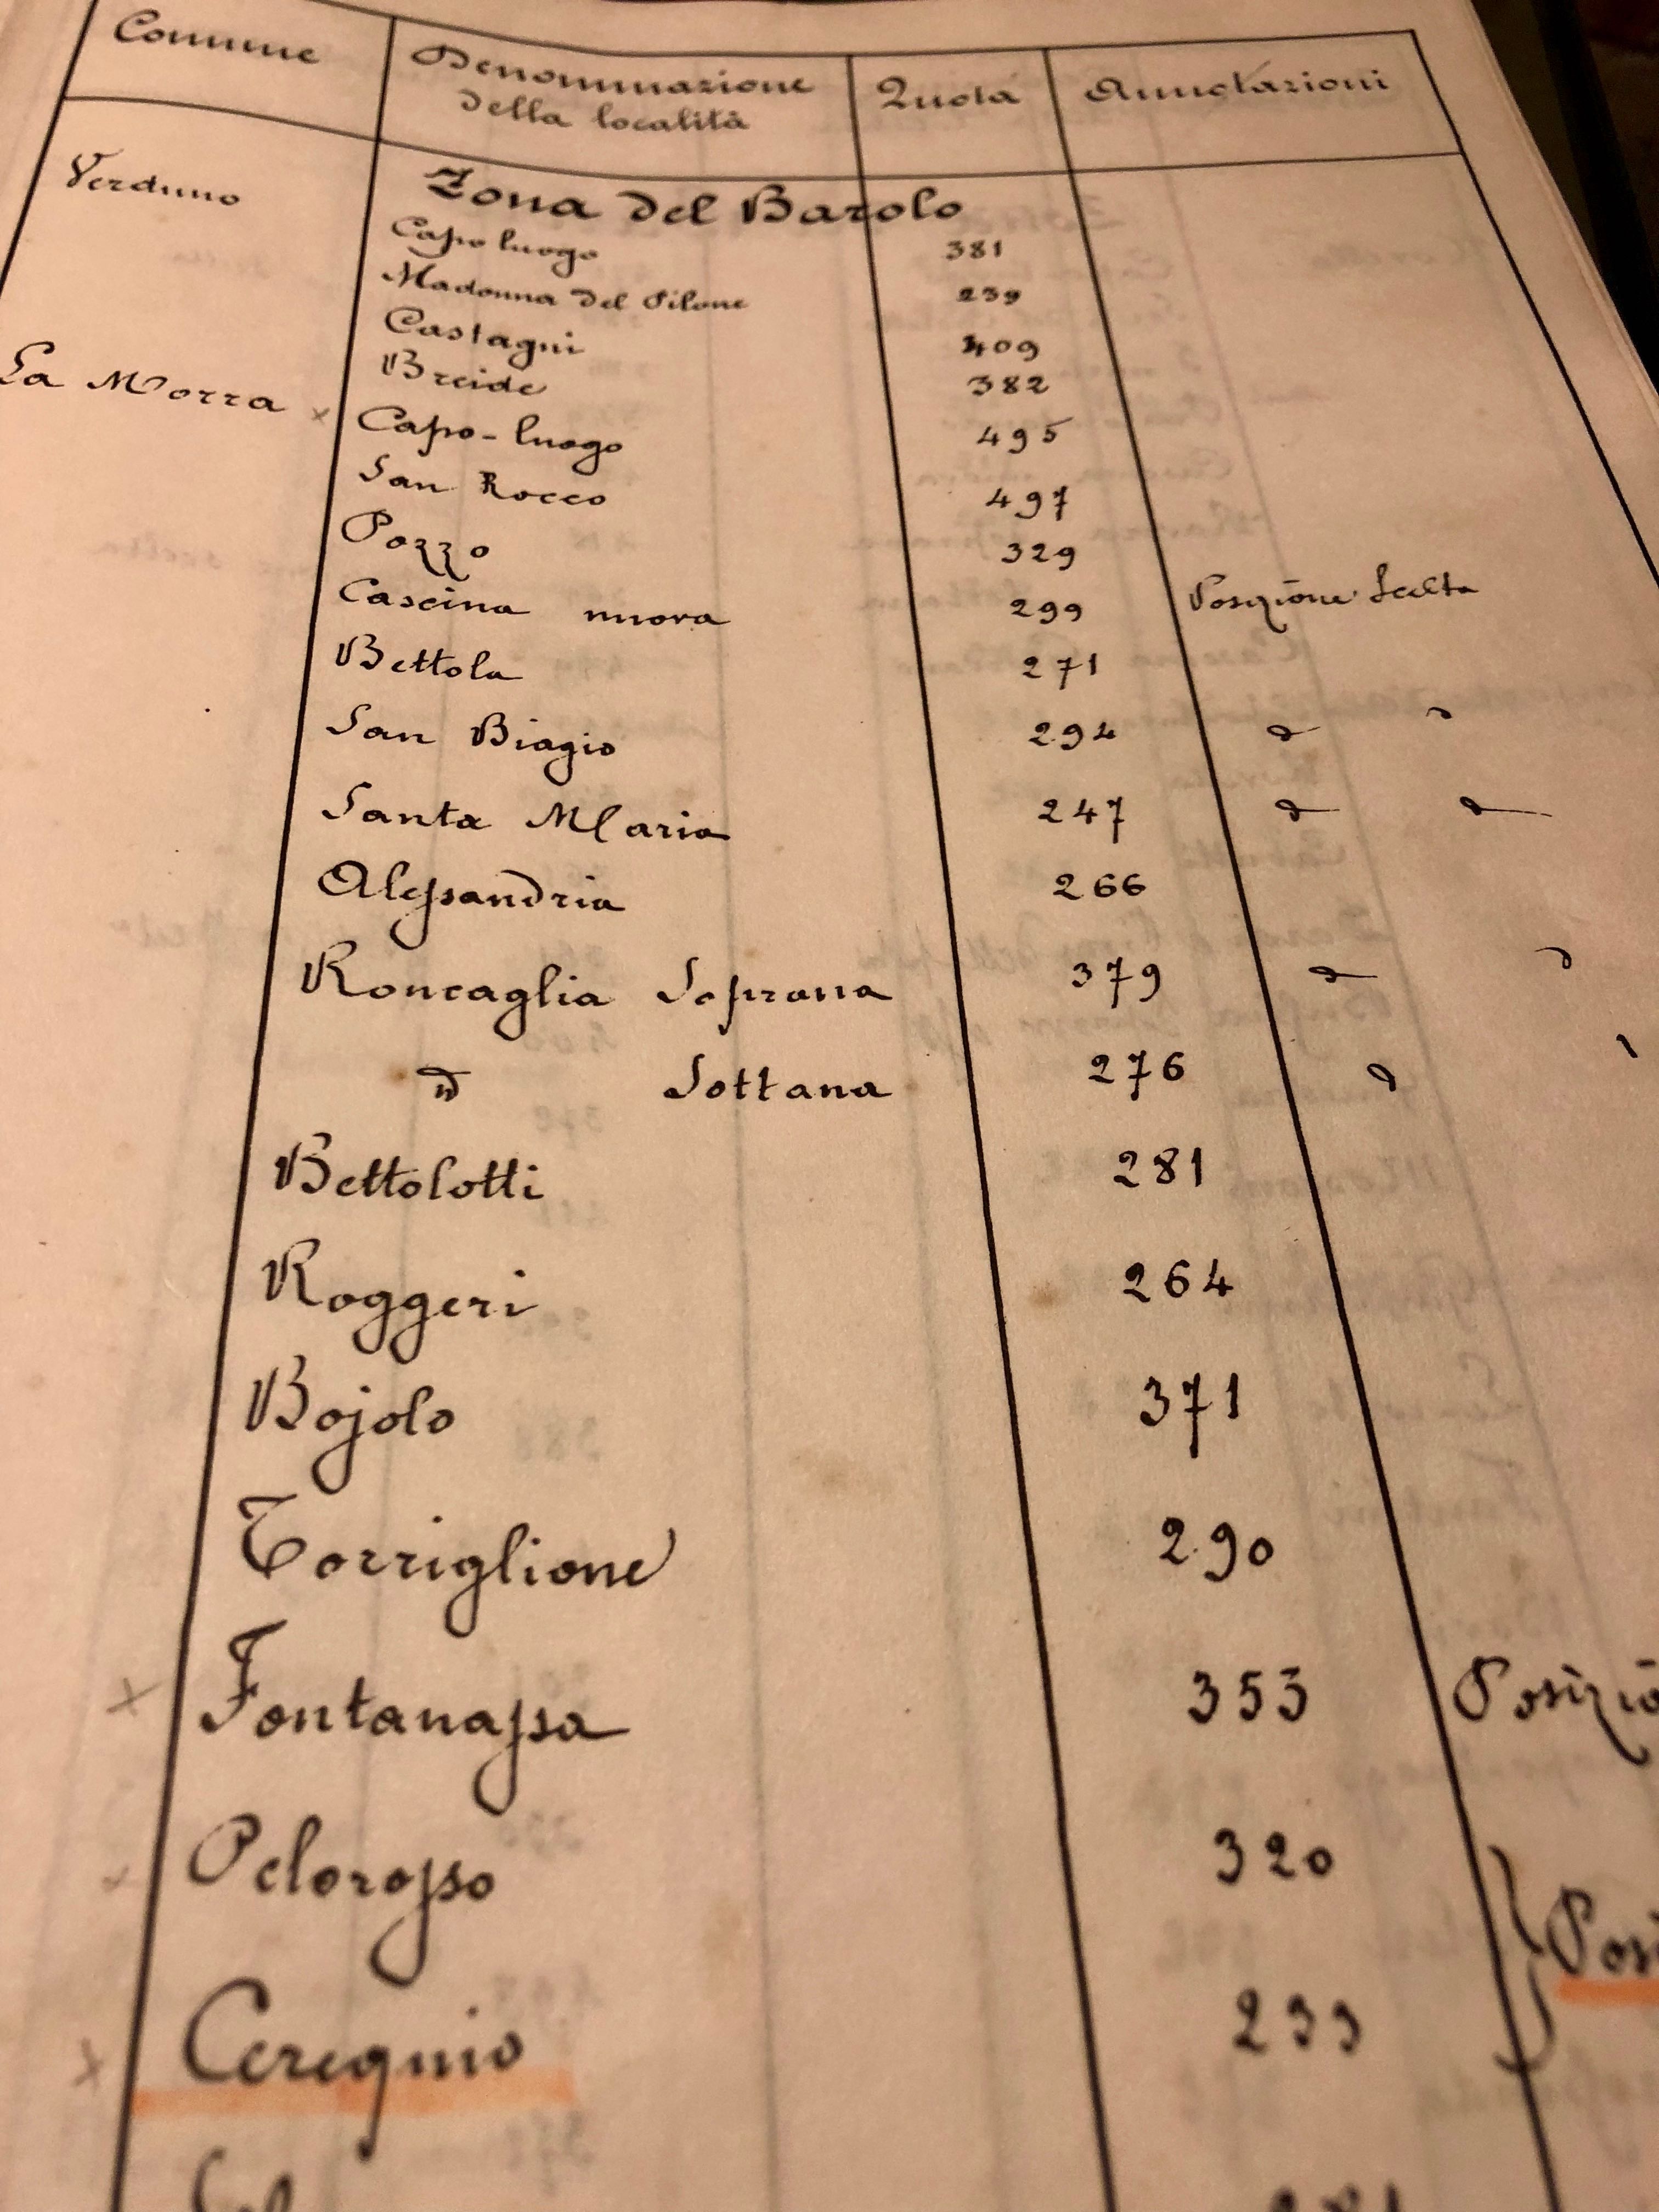 Comune Denominazione della località Quota Annotazioni
Zona del Barolo
Verduno Capo luogo 381
Madonna del Pilone 239
Castagni 409
Breide 382
La Morra × Capo-luogo 495
San Rocco 497
Pozzo 329
Cascina nuova 299 Posizione Scelta
Bettola 271
San Biagio 294
Santa Maria 247
Alessandria 266
Roncaglia Soprana 379
id Sottana 276
Bettolotti 281
Roggeri 264
Bojolo 371
Torriglione 290
× Fontanassa 353 Posizio
× Pelorosso 320
Posi
× Cerequio